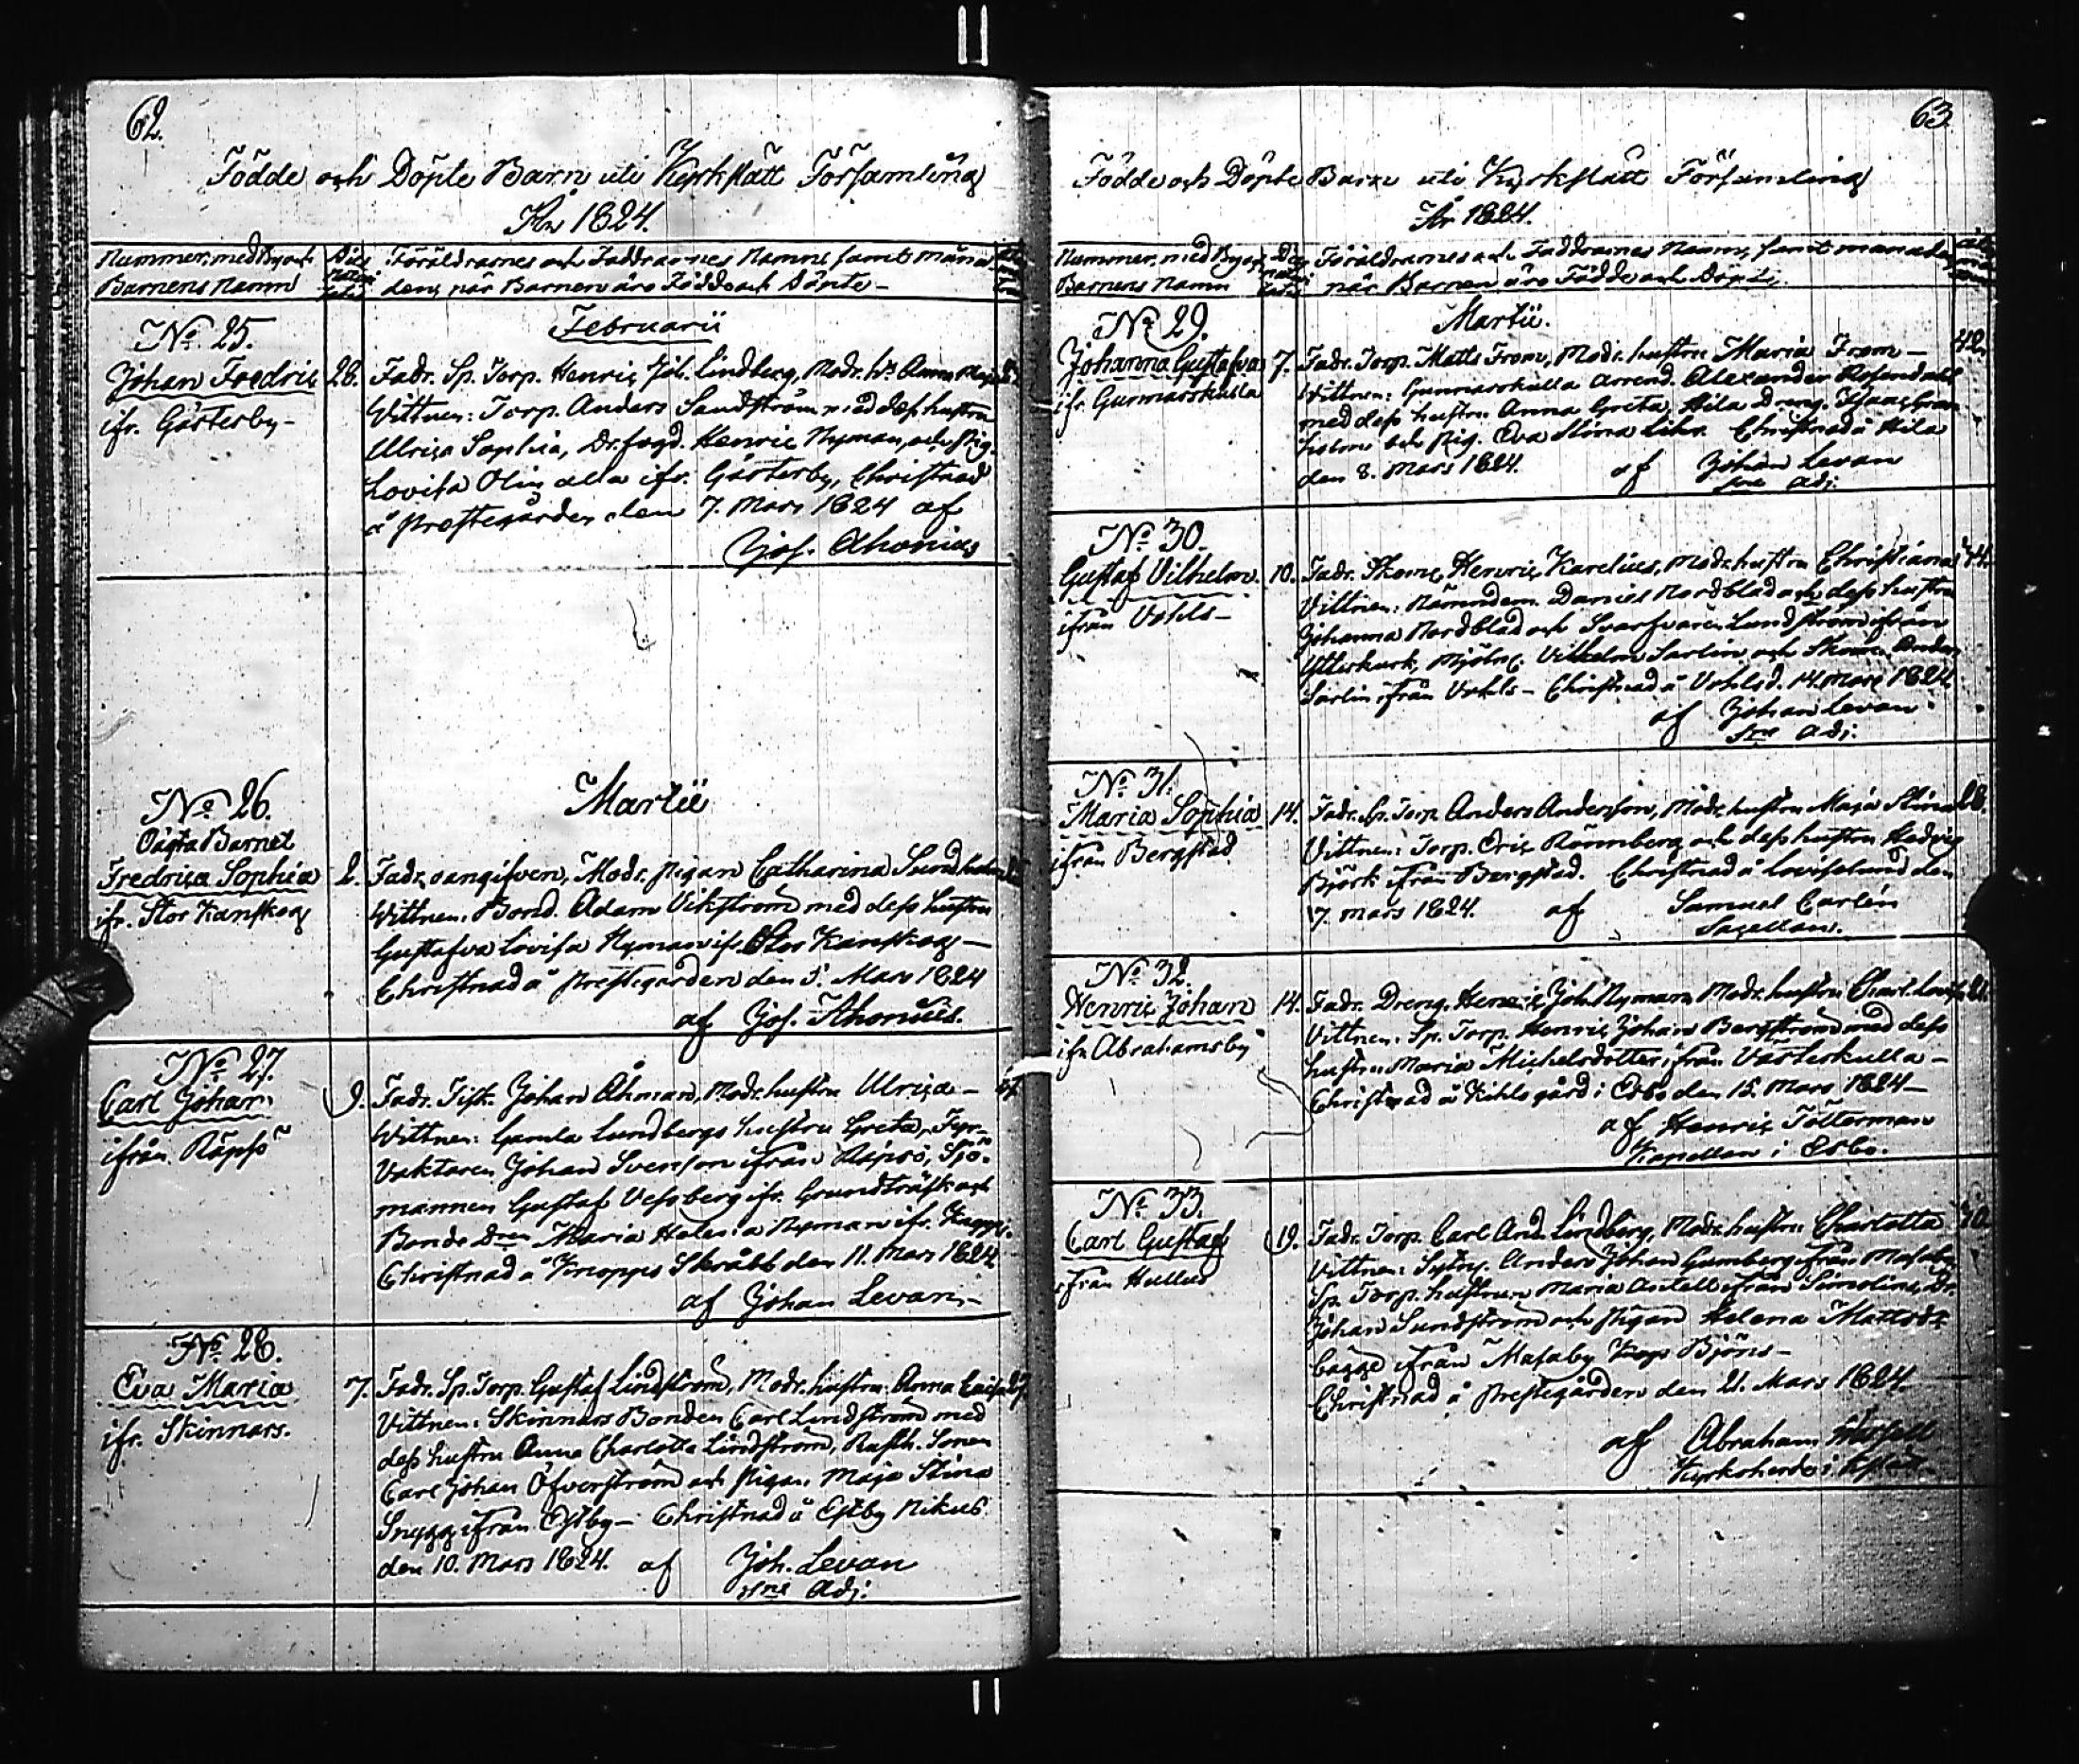 62.
Födde och Döpte Barn uti Kyrkslätt Församling
År 1824.
Nummer, med By och
Barnens Namn
Föräldrarnes och Faddrarnes Namn, samt måna-
den, när Barnen äro Födde och Döpte –
No. 25.
Februarii
Johan Fredric 28. Fadr. Sp. Torp. Henric Joh. Lindberg, Modr. h. Anna
ifr. Gästerby – Wittnen: Torp. Anders Sandström med dess hustru
Ulrica Sophia, Dr. fogd. Henric Nyman, och Pig.
Lovisa Olin alla ifr. Gästerby, Christnad
å Prestegården den 7. Mars 1824 af
Jos. Ahonius
No. 26.
Martii
Oägta Barnet
Fredrica Sophia 2. Fadr. oangifven, Modr. Pigan Catharina Sundholm
ifr. Stor Kanskog Wittnen. Bond. Adam Vikström med dess hustru
Gustafva Lovisa Nyman ifr. Stor Kanskog –
Christnad å Prestegården den 5. Mars 1824
af Jos. Ahonius.
No. 27.
Carl Johan 9. Fadr. Fisk. Johan Åhman, Modr. hustru Ulrica –
ifrån Räpsö Wittnen: Gamla Lundbergs hustru Greta, Fyr-
Vaktaren Johan Svenson ifrån Räpsö, Sjö-
mannen Gustaf Vesberg ifr. Grundträsk och
Bonde Dren Maria Helena Nyman ifr.
Christnad å Knopps Skråbb den 11. Mars 1824
af Johan Levan –
No. 28.
Eva Maria 7. Fadr. Sp. Torp. Gustaf Lindström, Modr. hustru Anna Caisa 27.
ifr. Skinnars. Vittnen: Skinnars Bonden Carl Lindström med
dess hustru Anna Charlotta Lindström, Rusth. Sonen
Carl Johan Öfverström och Pigan Maja Stina
Snygg ifrån Estby – Christnad å Estby Nikus
den 10. Mars 1824. af Joh. Levan
Adj:
63
Födde och Döpte Barn uti Kyrkslätt Församling
År 1824.
Nummer, med By och
Barnens Namn
Föräldrarnes och Faddrarnes Namn, samt månaden,
när Barnen äro Födde och Döpte.
No. 29.
Martii.
Johanna Gustafva 7. Fadr. Torp. Matts From, Modr. hustru Maria From – 42.
ifr. Gunnarskulla Wittnen: Gunnarskulla Arrend. Alexander Rosendahl
med dess hustru Anna Greta, Hila Dreng. Isaac Gran-
holm och Pig. Eva Stina Lihr. Christnad å Hila
den 8. Mars 1824. af Johan Levan
Adj:
No. 30.
Gustaf Vilhelm 10. Fadr. Skom. Henric Karelius, Modr. hustru Christiana 44.
ifrån Vohls – Vittnen: Nämndem. Daniel Nordblad och dess hustru
Johanna Nordblad och Svarfvaren Lundström ifrån
Ytterkurk, Mjöln. Vilhelm Sarlin och Skom. Anders
Sarlin ifrån Vohls – Christnad å Vohls d. 14. Mars 1824
af Johan Levan
Adj.
No. 31.
Maria Sophia 14. Fadr. Sp. Torp. Anders Anderson, Modr. hustru Maja Stina 28.
ifrån Bergstad Vittnen: Torp. Eric Rönnberg och dess hustru Hedvig
Björk ifrån Bergstad. Christnad å Lovisalund den
17. Mars 1824. af Samuel Carlén
Sacellan.
No. 32.
Henric Johan 14. Fadr. Dreng. Henric Joh. Nyman Modr. hustru Charl. Lovisa
ifr. Abrahamsby Vittnen: Sp. Torp. Henric Johan Bergström med dess
hustru Maria Michelsdotter, ifrån Västerkulla –
Christnad å Kihls gård i Esbo den 15. Mars 1824 –
af Henric Tötterman
Kapellan i Esbo.
No. 33.
Carl Gustaf 19. Fadr. Torp. Carl And. Lindberg, Modr. hustru Charlotta 30.
ifrån Hullus Vittnen: Sytng. Anders Johan Gumberg ifrån Masaby
Sp. Torp. hustrun Maria Antell ifrån Sundine, Dr.
Johan Sundström och Pigan Helena Mattsdr
Bagge ifrån Masaby Björns –
Christnad å Prestegården den 21. Mars 1824.
af Abraham
Kyrkoherde i